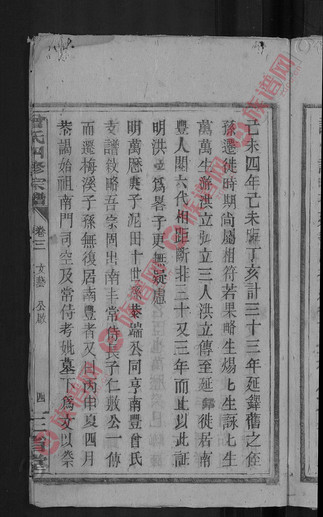 己未四年己未暨丁亥計三十三年延鐸舊之侄
孫遷徙時期尚屬相符若果略生煬七生詠七生
萬萬生游洪立弘立三人洪立傳至延鐸徙居南
豐人閱六代相距斷非三十又三年而止以此証
明洪立為畧子更無疑慮
明萬厯庚子泥田十世孫恭端公同亨南豐曾氏
支譜敘略吾宗固出南丰常侍長子仁敷公一傳
而遷梅溪子孫無復居南豐者又曰丙申夏四月
恭謁始祖南門司空及常侍考妣墓下為文以祭
曾氏四修宗譜
卷三
文藝
公啟
四
三省堂
族谱网